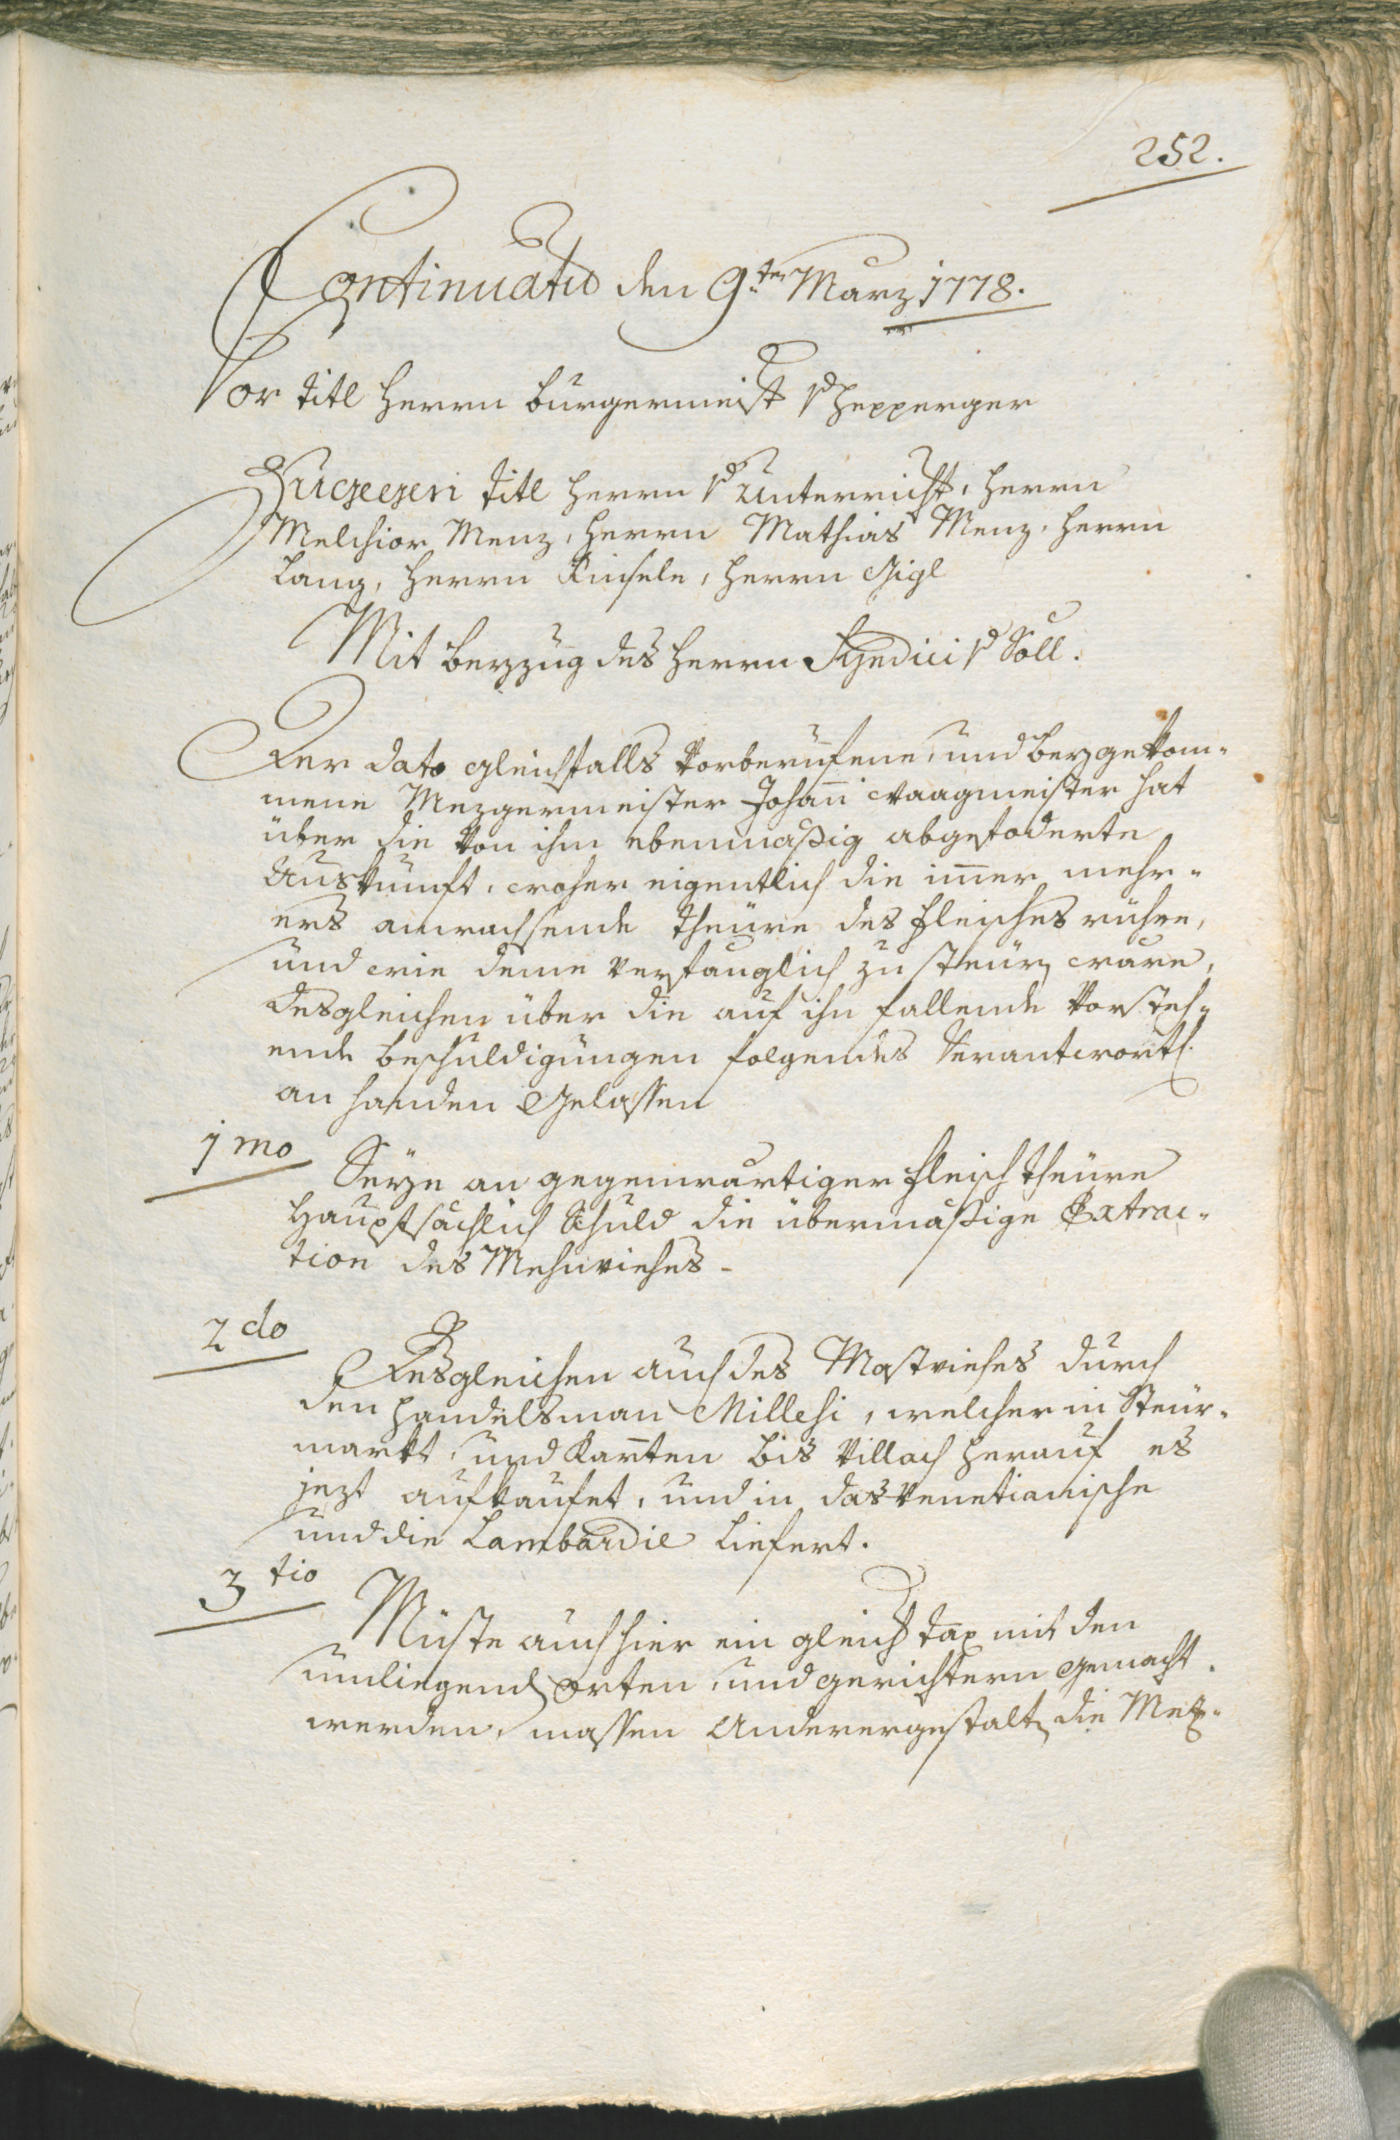 252.
Continuatio den 9.ten Marz 1778.
Vor titl Herrn burgermeist v Hepperger
Zugegen titl Herrn v Unterricht, Herrn
Melchior Menz, Herrn Mathias Menz, Herrn
Lang, Herrn Kinsele, Herrn Gigl
Mit beyzug des Herrn Syndici v Söll.
Der dato gleichfalls vorberufene, und beygekom-
mene Mezgermeister Johann Waagmeister hat
über die von ihm ebenmäßig abgefoderte
Auskunft, woher eigentlich die immer mehr-
ers anwachsende theure des fleisches rühre,
und wie deme verfänglich zu steuren wäre,
desgleichen über die auf ihn fallende vorsteh-
ende beschuldigungen folgendes verantwortl.
an handen gelassen
1mo
Seye an gegenwärtiger fleisch theure
Hauptsächlich schuld die übermäßige Extrac-
tion des Mehnviehes.
2do
Desgleichen auch des Mastviehes durch
den handelsman Millesi, welcher in Steur-
markt, und Karnten bis Villach herauf es
jezt aufkaufet, und in das Venetianische
und die Lambardie liefert.
3tio
Müste auch hier ein gleich tax mit den
umliegend Orten, und gerichtern gemacht
werden, massen Anderergestalt die Mez-